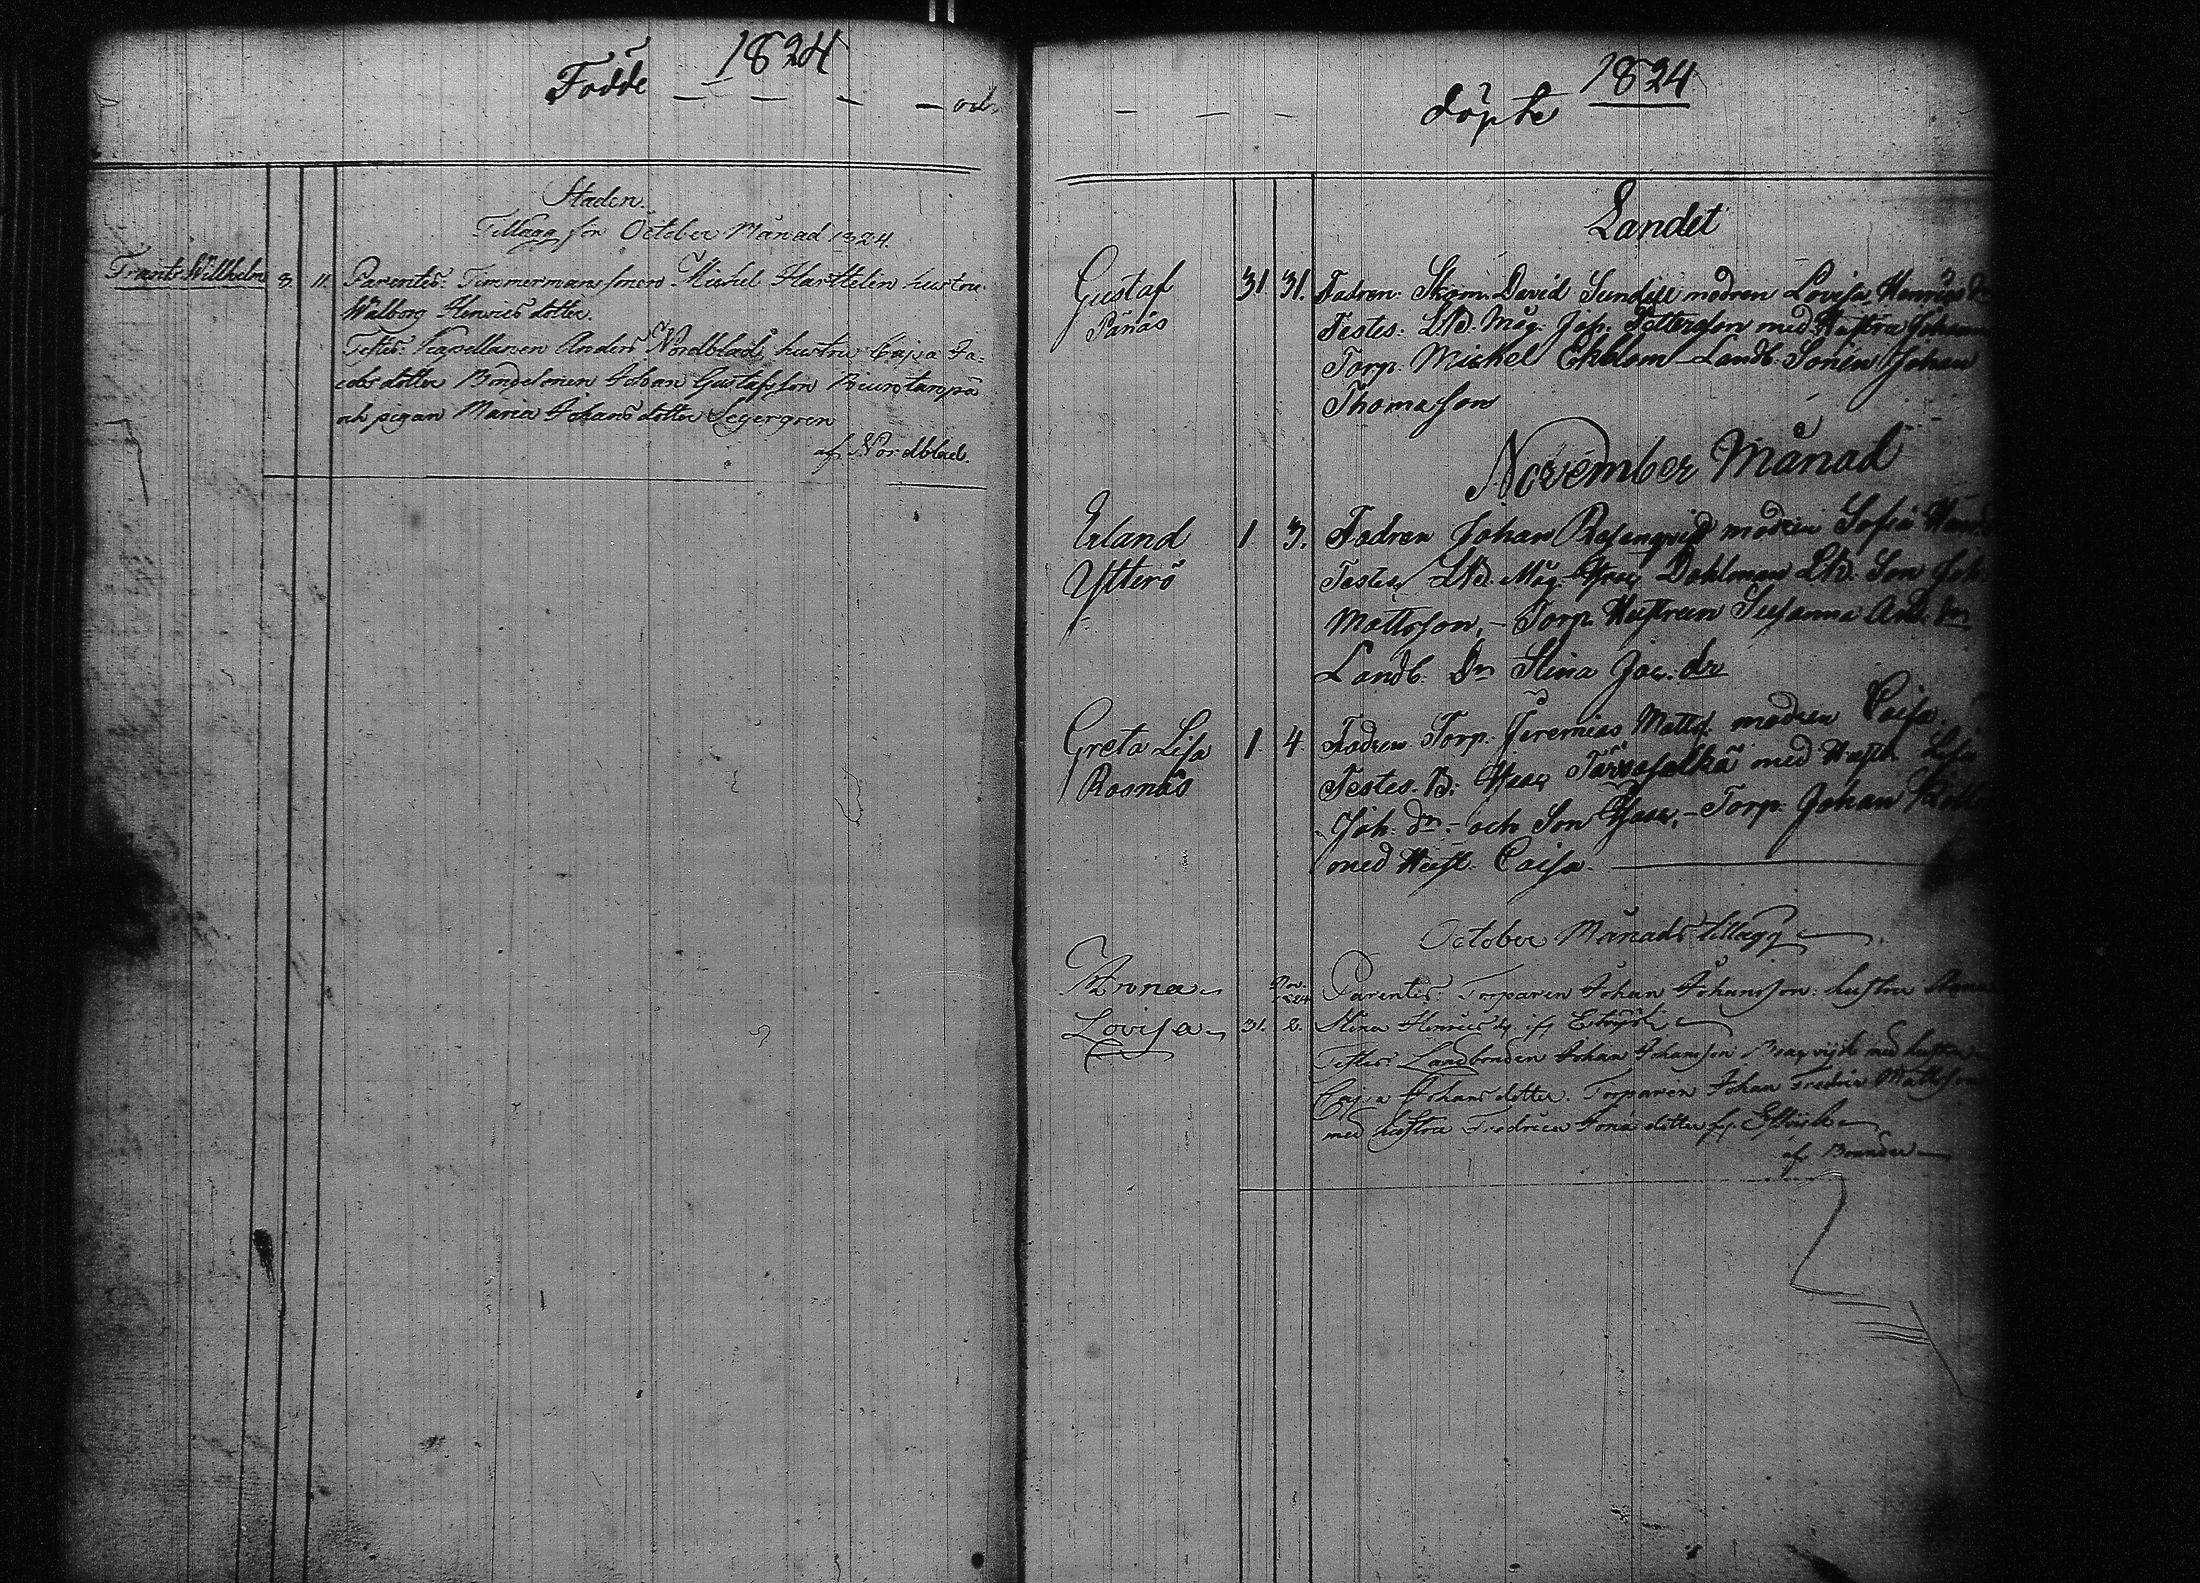 Födde 1824 och
Staden.
Tillägg för October Månad 1824.
Frants Willhelm 8. 11. Parentes: Timmermanssonen Michel Harttelin hustru
Walborg Henricsdotter.
Testes: Kapellanen Anders Nordblad, hustru Cajsa Ja-
cobsdotter Bondesonen Johan Gustafsson
och pigan Maria Johansdotter Segergren
af Nordblad.
1824
döpte
Landet
Gustaf 31. 31. Fadren: Skom. David Sundell modren Lovisa Henrics dr
Panäs Testes: Lbd. Mag. Jsp. Pettersson med Hustru Johanna
Torp. Michel Ekblom Landb. Sonen Johan
Thomasson
November Månad
Erland 1 3. Fadren Johan Rosenqvist modren Sofia
Ytterö Testes Lbd. Mag. Dahlman Lbd. Son Joh.
Mattsson, - Torp. Hustrun Susanna And. dr
Landb. Dr Stina Jac. dr
Greta Lisa 1. 4. Fadren Torp. Jeremias Matts. modren Caisa
Rosnäs Testes. B. Isac med Hust. Lisa
Joh. dr. - och Son Isac, - Torp. Johan
med Hust. Caisa.
October Månads tillägg
Anna Nov. 1824 Parentes: Torparen Johan Johansson: hustru
Lovisa 31. 2. Stina Henricsdr
Testes: Landbonden Johan Johansson med hustru
Cajsa Johansdotter. Torparen Johan Fredric Mattsson
med hustru Fredrica
af Brander